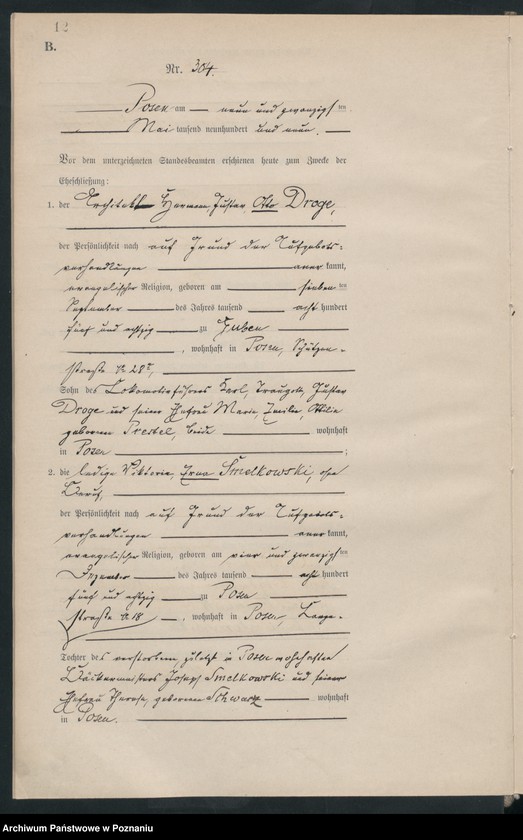 12
B.
Nr. 304.
Posen am neun und zwanzigsten
Mai tausend neunhundert und neun.
Vor dem unterzeichneten Standesbeamten erschienen heute zum Zwecke der
Eheschließung:
1. der Architekt Hermann, Gustav, Otto Droge,
der Persönlichkeit nach auf Grund der Aufgebots-
verhandlungen aner kannt,
evangelischer Religion, geboren am sieben ten
September des Jahres tausend acht hundert
fünf und achtzig zu Guben
, wohnhaft in Posen, Schützen-
straße No 28a,
Sohn des Lokomotivführers Karl, Traugott, Gustav
Droge und seiner Ehefrau Marie, Emilie, Ottilie
geborenen Prestel, beide wohnhaft
in Posen ;
2. die ledige Viktoria, Erna Smelkowski, ohne
Beruf,
der Persönlichkeit nach auf Grund der Aufgebots-
verhandlungen aner kannt,
evangelischer Religion, geboren am vier und zwanzigsten
Dezember des Jahres tausend acht hundert
fünf und achtzig zu Posen
straße No 18 , wohnhaft in Posen, Lange-
Tochter des verstorbenen, zuletzt in Posen wohnhaften
Bäckermeisters Joseph Smelkowski und seiner
Ehefrau Therese, geborenen Schwarz wohnhaft
in Posen.
Archiwum Państwowe w Poznaniu